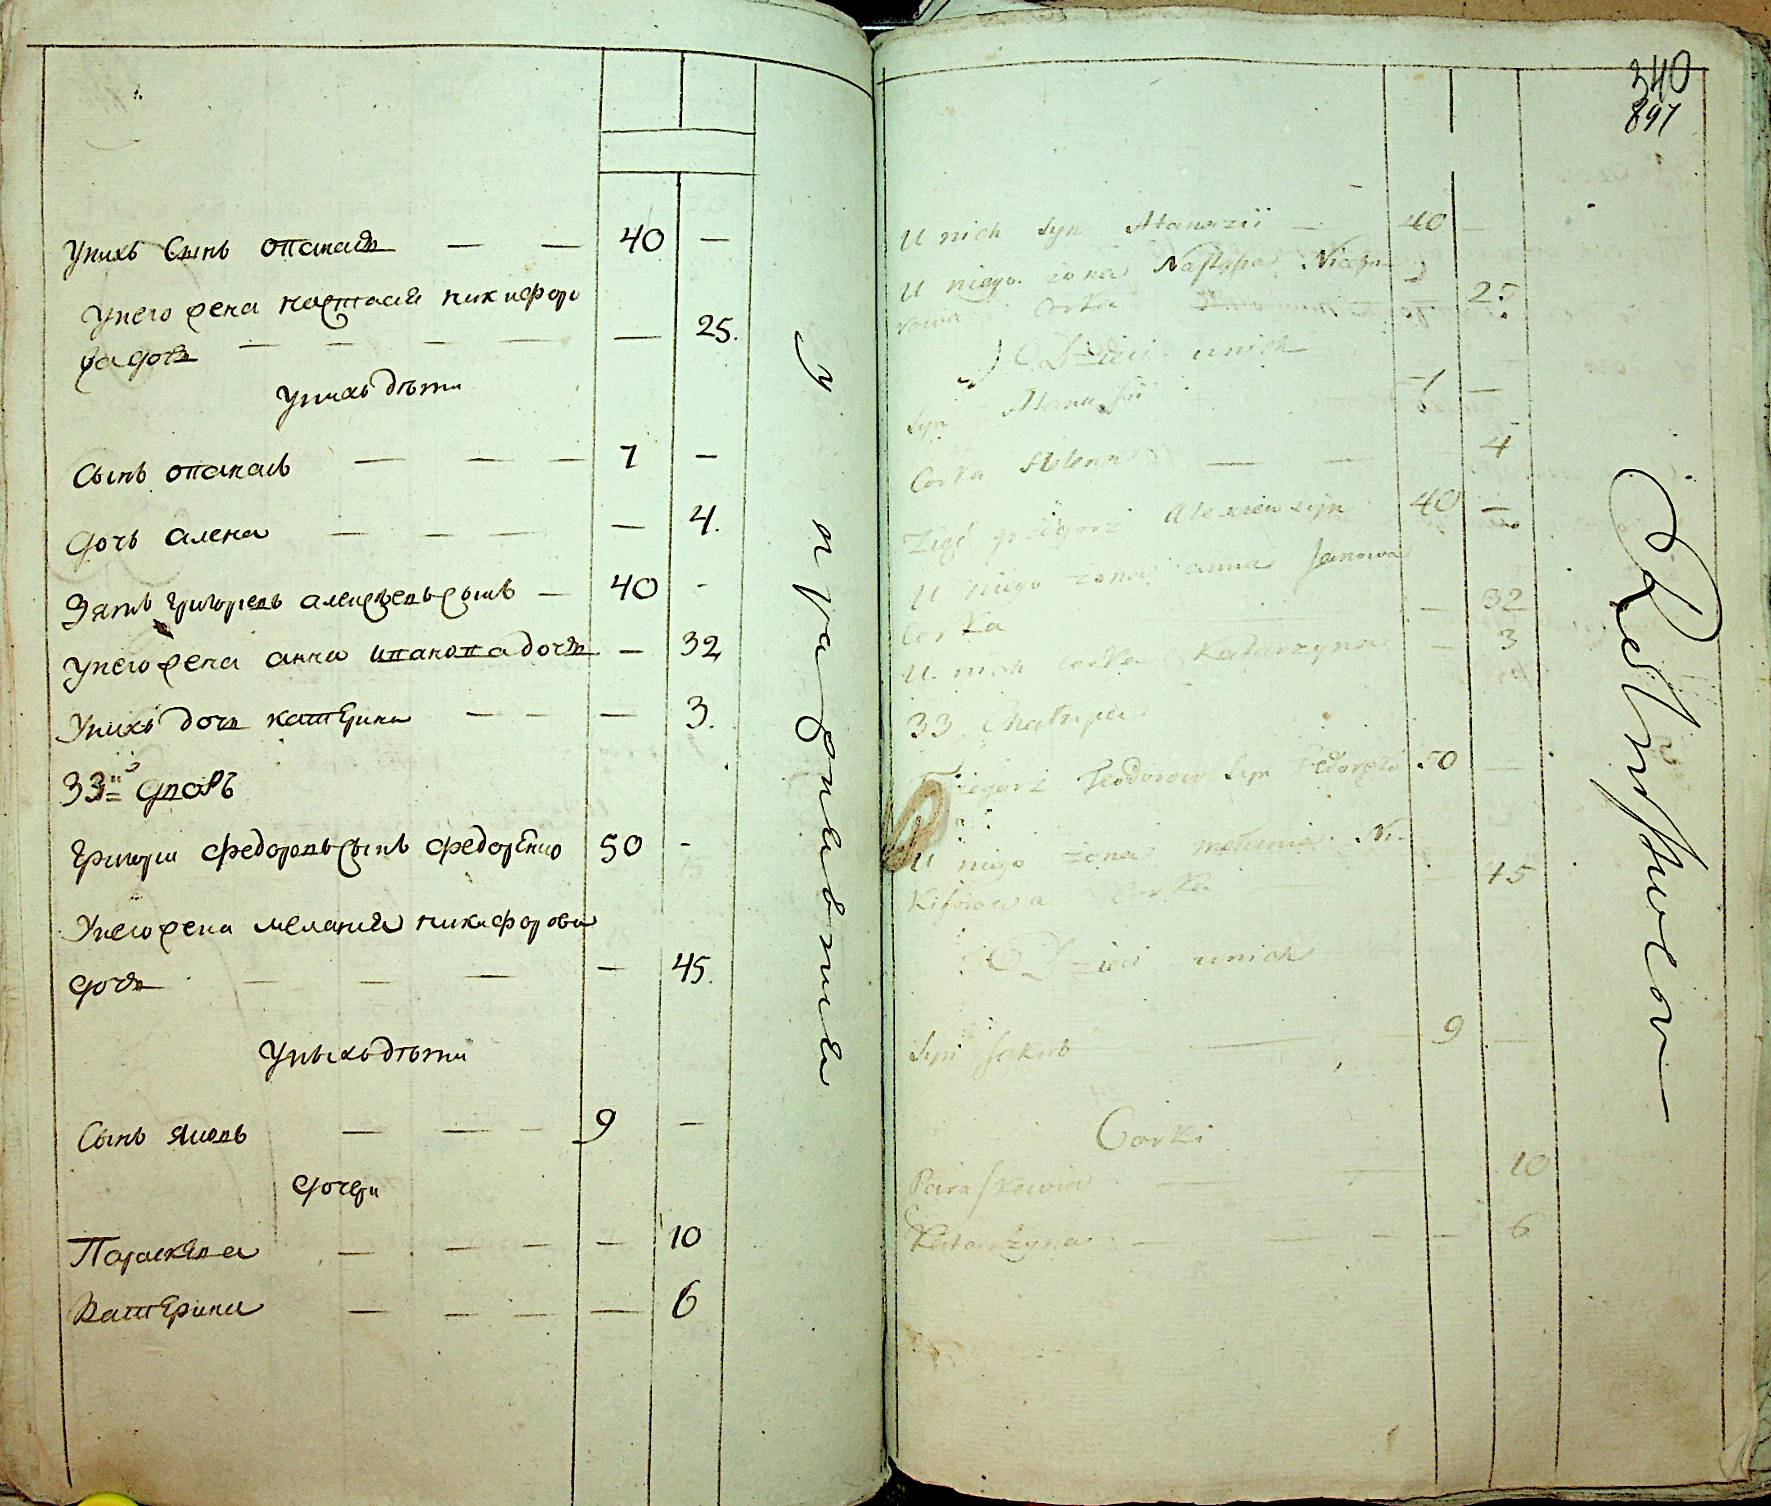 У нихъ сынъ Опанасъ — — 40 —
У него жена Настасия Никифоро
ва дочь — — — — — 25.
У нихъ дѣти
Сынъ Опанасъ — — — 7 —
Дочь Алена — — — — 4.
Зять Григорей Алексѣевъ сынъ — 40 -
У него жена Анна Иванова дочь — 32
У нихъ дочь Катерина — — — 3.
33й дворъ
Григорий Федоровъ сынъ Федоренко 50 -
У него жена Мелания Никифорова
дочь — — — — 45.
У ныхъ дѣти
Сынъ Яковъ — — — 9 —
Дочери
Параскева — — — — 10
Катерина — — — — 6
340
891
U nich syn Atanazii — 40 —
U niego żona Nastazya Nicefo
rowa Corka 25
Dzieci u nich
Syn Atanasii 7 —
Corka Helena — — 4
Zięć Grzegorz Alexiew syn 40 —
U niego żona Anna Janowa
Corka — 32
U nich Corka Katarzyna — 3
33 Chałupa
Grzegorz Teodorow syn Fedorenko 50 —
U niego żona Melania Ni-
kiforowa Corka — 45
Dzieci u nich
Syn Jakub — 9 —
Corki
Paraskewia — — 10
Katarzyna — — — — 6